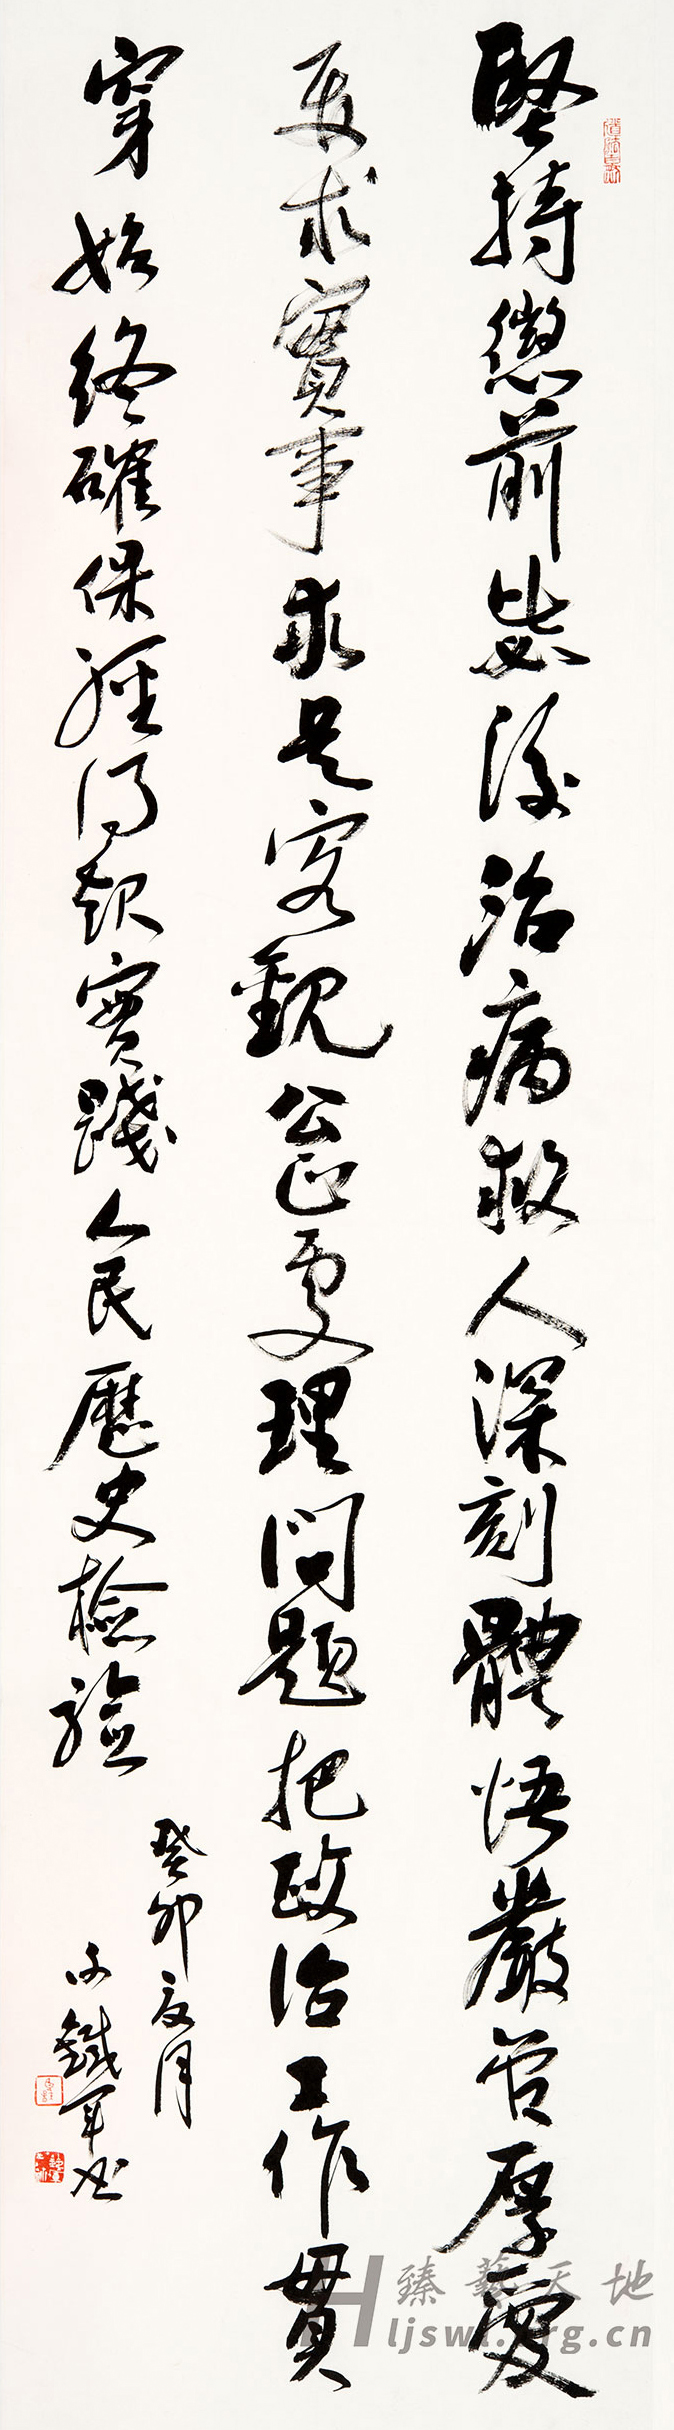 堅持懲前毖後治病救人深刻體悟嚴管厚愛
要求實事求是客觀公正處理問題把政治工作貫
穿始終確保經得起實踐人民歷史檢驗
癸卯夏月
鐵軍书
臻藝天地
Hljswl.org.cn